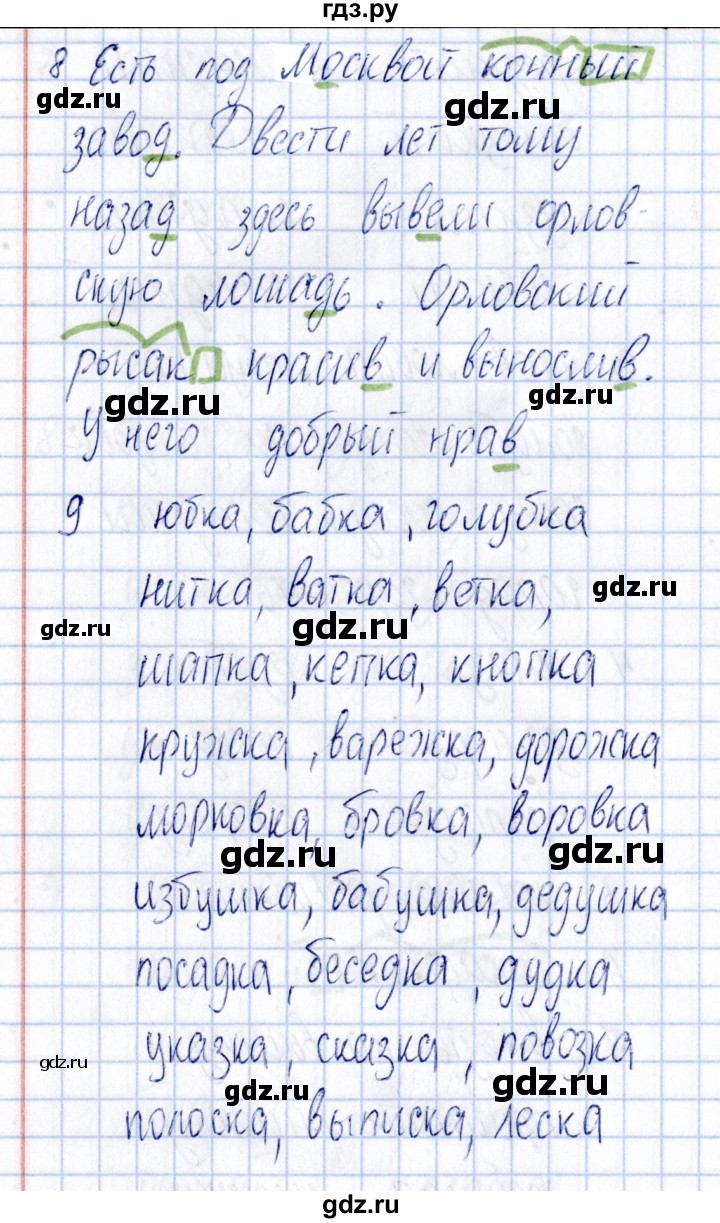 гдз.ру
8 Есть под Москвой конный
gdz.ru
gdz.ru
завод. Двести лет тому
назад здесь вывели орлов-
скую лошадь. Орловский
рысак красив и вынослив.
gdz.ru
gdz.ru
У него добрый нрав
9 юбка, бабка, голубка
нитка, ватка, ветка,
gdz.ru
gdz.ru
gdz.ru
шапка, кепка, кнопка
кружка, варежка, дорожка
морковка, бровка, воровка
gdz.ru
gdz.ru
избушка, бабушка, дедушка
посадка, беседка, дудка
указка, сказка, повозка
gdz.ru
gdz.ru
gdz.ru
полоска, выписка, леска
gdz.ru